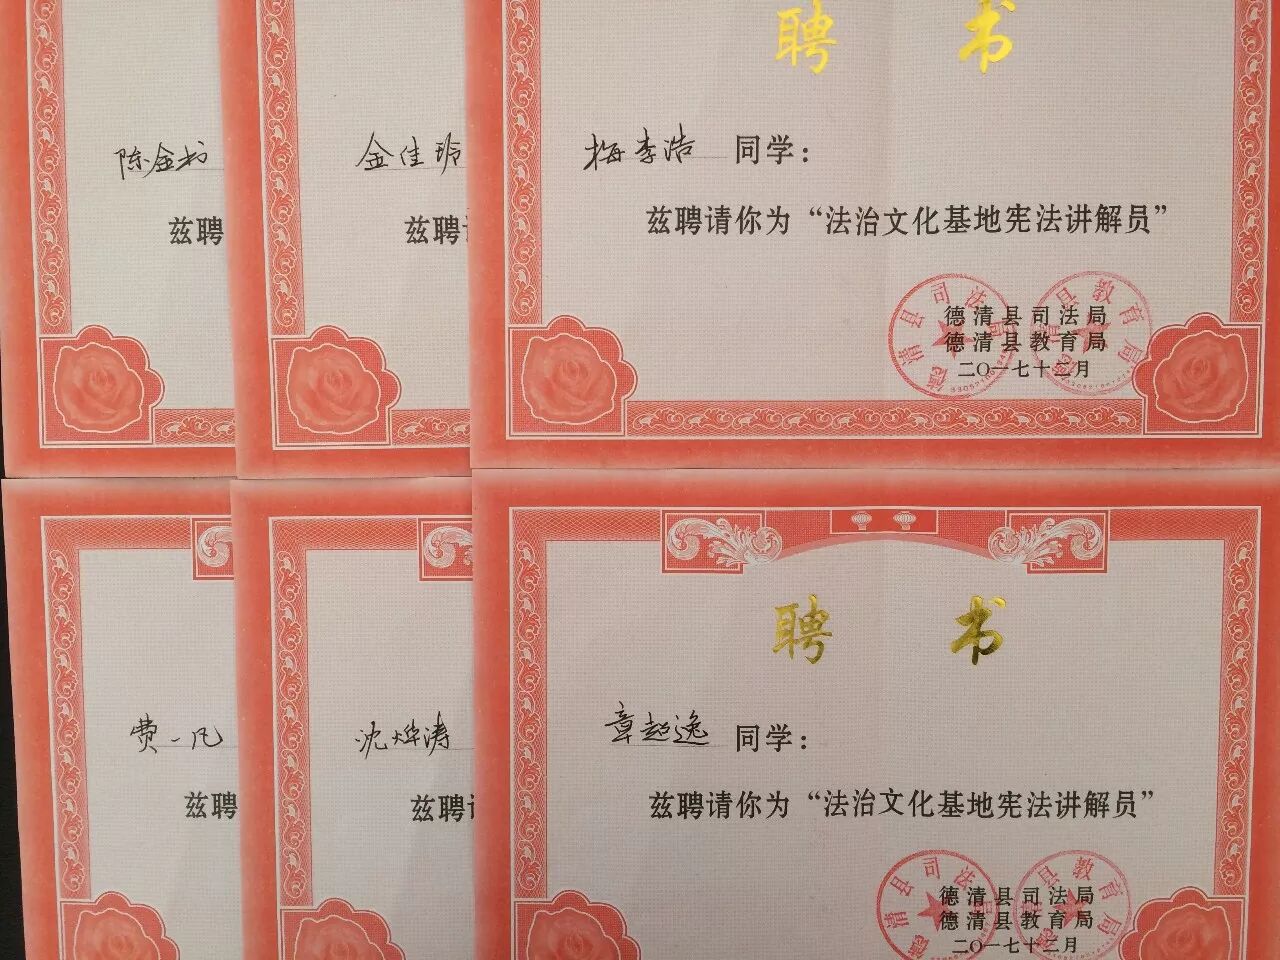 陈金
兹聘
金佳
兹聘
聘 书
梅李浩 同学：
兹聘请你为“法治文化基地宪法讲解员”
德清县司法局
德清县教育局
二〇一七十二月
费一凡
兹聘
沈烨涛
兹聘
聘 书
章超逸 同学：
兹聘请你为“法治文化基地宪法讲解员”
德清县司法局
德清县教育局
二〇一七十二月